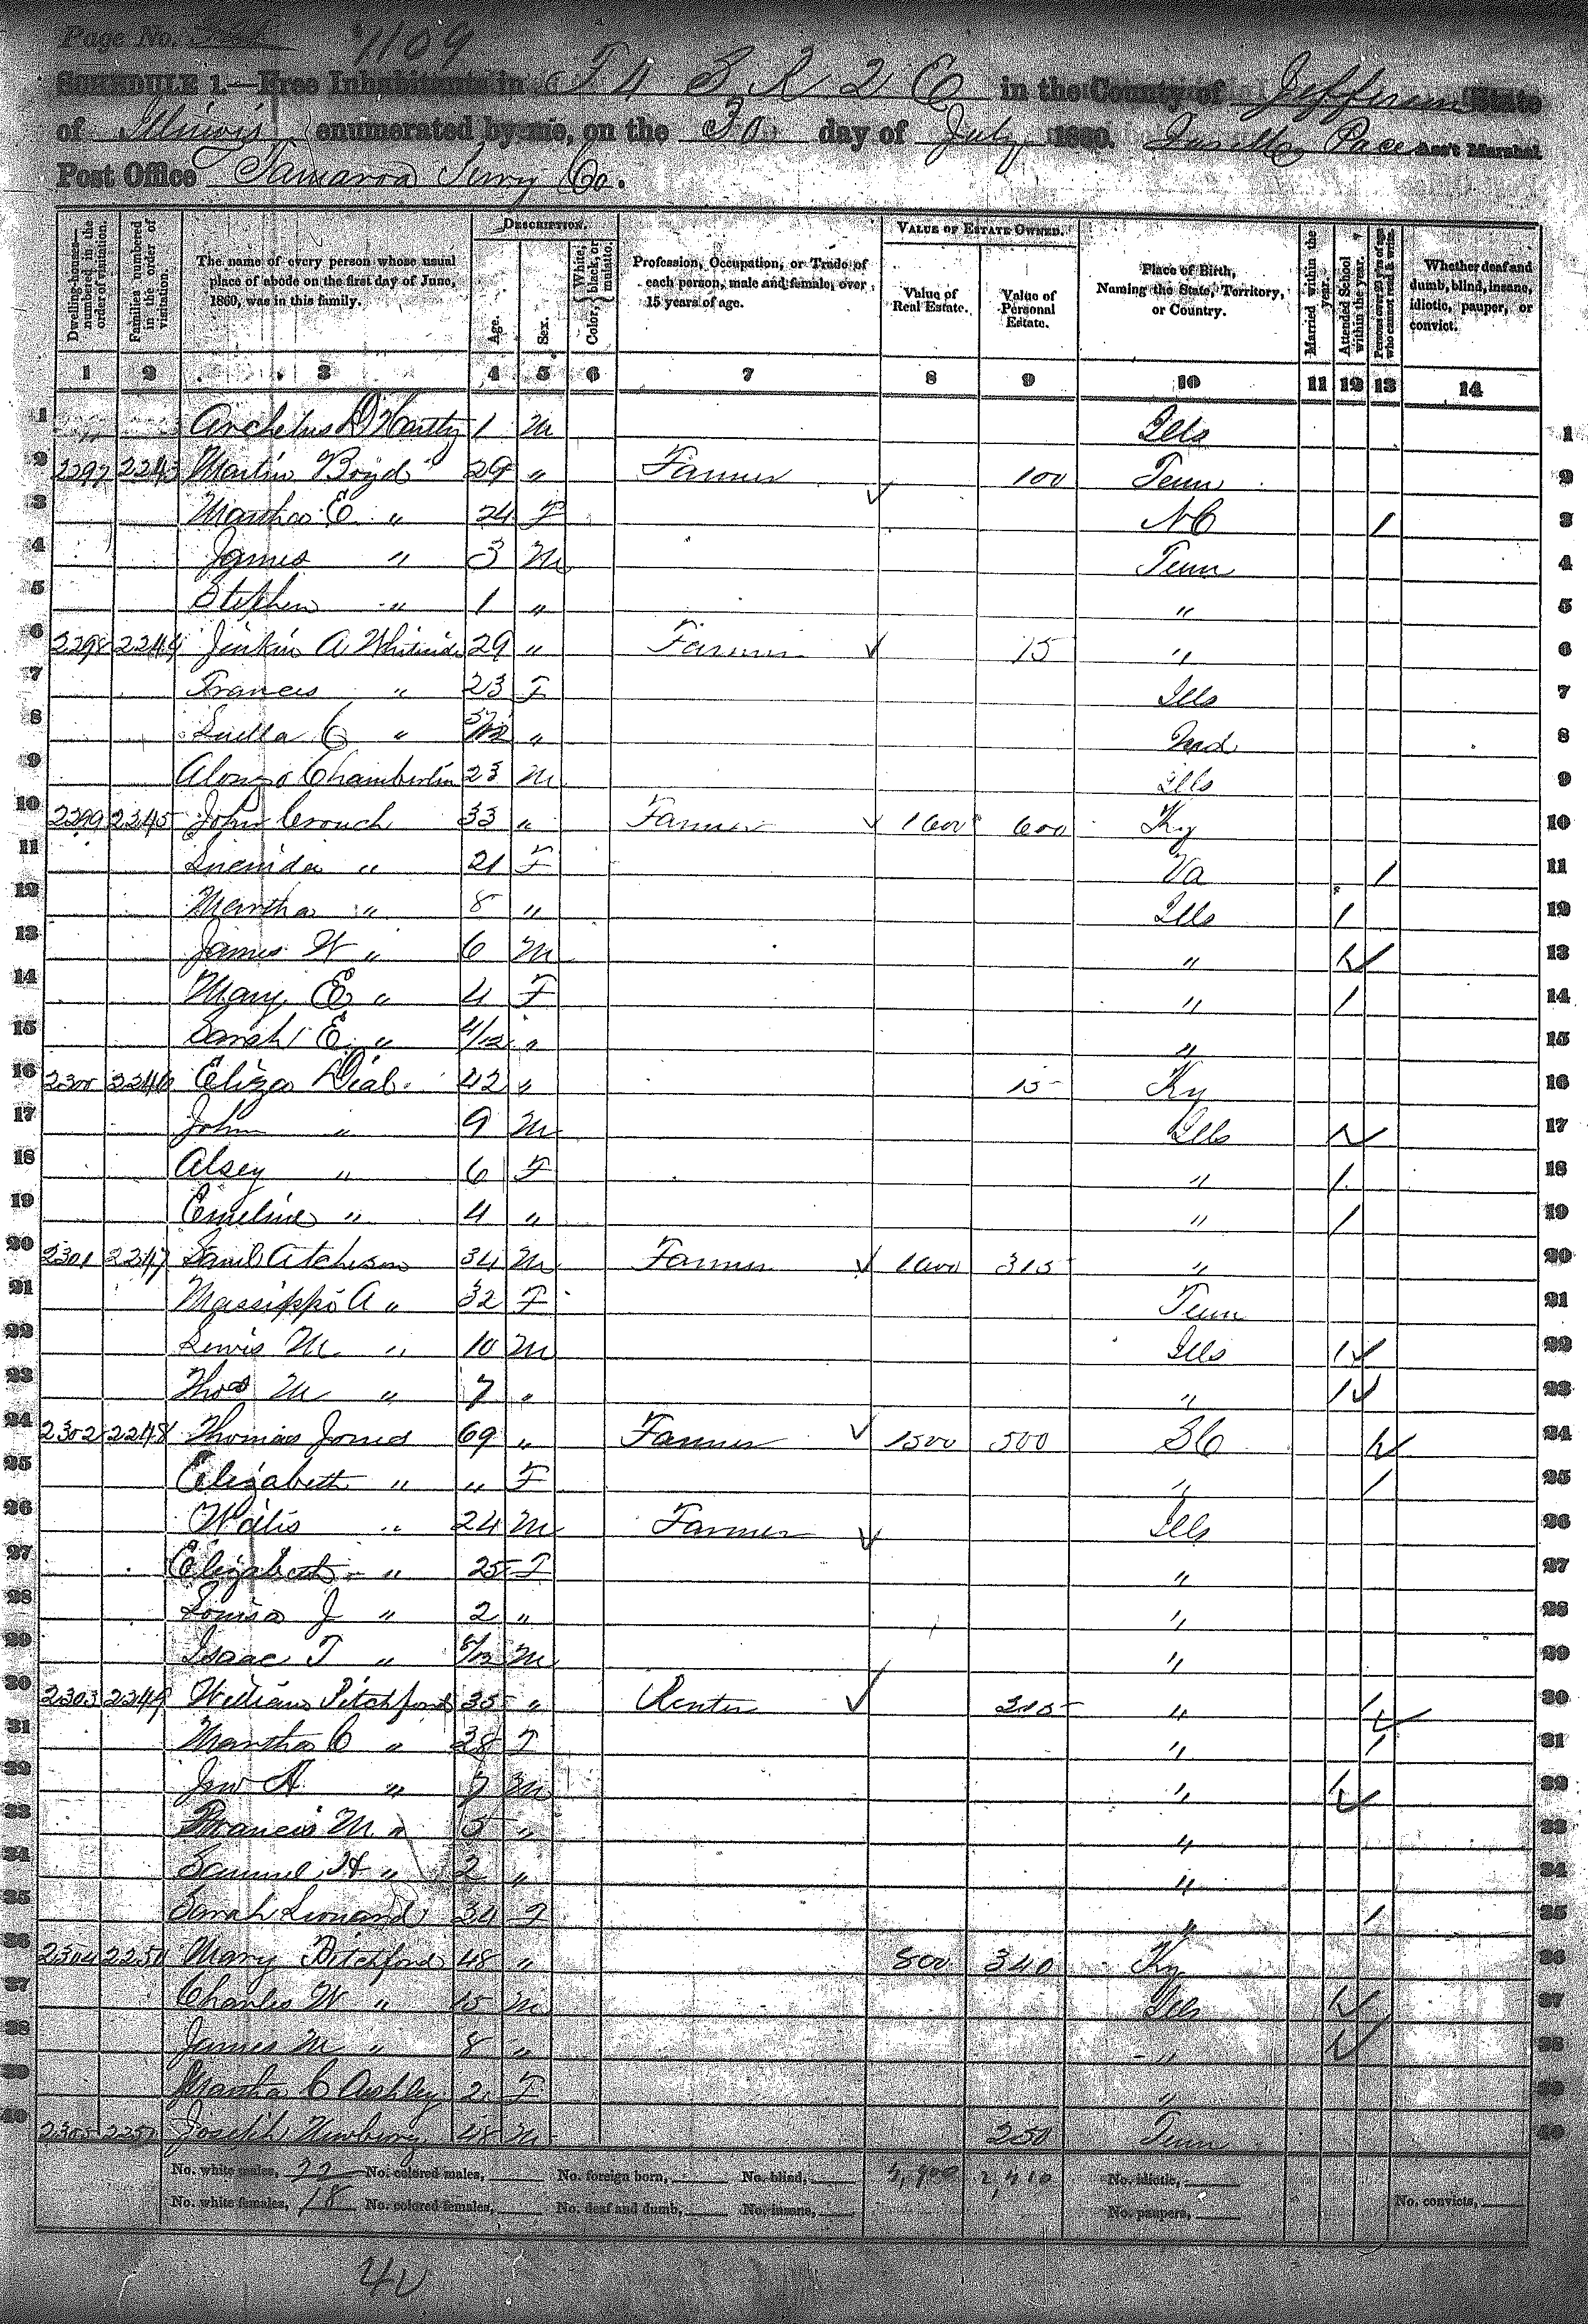 Page No.
1109
SCHEDULE 1.—Free Inhabitants in T 4 S R 2 E in the County of Jefferson State
of Illinois enumerated by me, on the 30 day of July 1860. Pace Ass't Marshal
Post Office Tamaroa Perry Co.
Dwelling-houses—numbered in the order of visitation.
Families numbered in the order of visitation.
The name of every person whose usual place of abode on the first day of June, 1860, was in this family.
DESCRIPTION.
Age.
Sex.
Color, White, black, or mulatto.
Profession, Occupation, or Trade of each person, male and female, over 15 years of age.
VALUE OF ESTATE OWNED.
Value of Real Estate.
Value of Personal Estate.
Place of Birth, Naming the State, Territory, or Country.
Married within the year.
Attended School within the year.
Persons over 20 y'rs of age who cannot read & write.
Whether deaf and dumb, blind, insane, idiotic, pauper, or convict.
1 2 3 4 5 6 7 8 9 10 11 12 13 14
1 " Archelus D Hartly 1 M Ills 1
2 2297 2243 Martin Boyd 29 " Farmer 100 Tenn 2
3 Martha E " 24 F NC / 3
4 James " 3 M Tenn 4
5 Stephen " 1 " " 5
6 2298 2244 Jenkin A Whitesid 29 " Farmer 15 " 6
7 Frances " 23 F Ills 7
8 Luella C " 5/12 " Ind 8
9 Alonzo Chamberlin 23 M Ills 9
10 2299 2245 John Crouch 33 " Farmer 1600 600 Ky 10
11 Lucinda " 21 F Va / 11
12 Martha " 8 " Ills / 12
13 James W " 6 M " / 13
14 Mary E " 4 F " / 14
15 Sarah E " 4/12 " " 15
16 2300 2246 Eliza Dial 42 " 15 Ky 16
17 John " 9 M Ills / 17
18 Alsey " 6 F " / 18
19 Emeline " 4 " " / 19
20 2301 2247 Saml Atcheson 34 M Farmer 1000 315 " 20
21 Massippi A " 32 F Tenn 21
22 Lewis M " 10 M Ills / 22
23 Thos M " 7 " " / 23
24 2302 2248 Thomas Jones 69 " Farmer 1500 500 SC / 24
25 Elizabeth " " F " / 25
26 Willis " 24 M Farmer Ills 26
27 Elizabeth " 25 F " 27
28 Louisa J " 2 " " 28
29 Isaac T " 8/12 M " 29
30 2303 2249 William Pitchford 35 " Renter 215 " / 30
31 Martha C " 28 F " / 31
32 Jno A " 7 M " / 32
33 Francis M " 5 " " 33
34 Samuel H " 2 " " 34
35 Sarah Leonard 34 F " / 35
36 2304 2250 Mary Pitchford 48 " 800 340 Ky 36
37 Charles W " 15 M Ills / 37
38 James M " 8 " " / 38
39 Martha C Ashley 2 F " 39
40 2305 2251 Joseph Newberry 48 M 250 Tenn 40
No. white males, 22 No. colored males, No. foreign born, No. blind, No. idiotic,
No. white females, 18 No. colored females, No. deaf and dumb, No. insane, No. paupers, No. convicts,